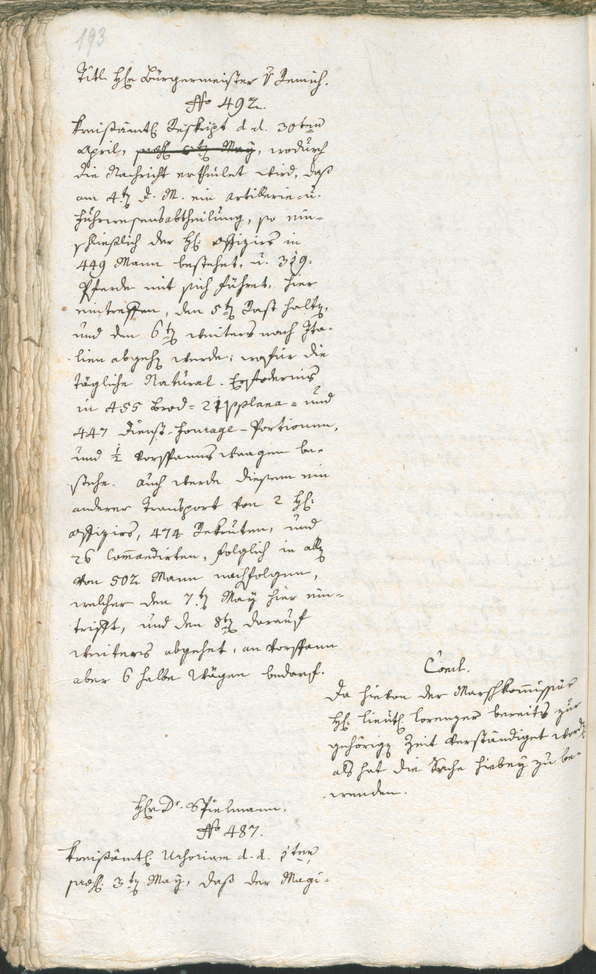 193
Titl. H: Bürgermeister v Remich.
No 492.
Kreisämtl. Reskript d. d. 30ten
April, praes. 6t. May, wodurch
die Nachricht ertheilet wird, daß
am 4t. d. M. ein Artillerie- u.
Fuhrwesensabtheilung, so ein-
schließlich der H: Offizirs in
449 Mann bestehet, u. 319.
Pferde mit sich führet, hier
eintreffen, den 5t. Rast halte,
und den 6t. weiters nach Ita-
lien abgehe werde; wofür die
tägliche Natural-Erforderniß
in 455 Brod- und
447 Dienst-Fourage-Portionen,
und ½ Vorspannswaagen be-
stehe. Auch werde diesem ein
anderer Transport von 2 H:
Offizirs, 474 Rekruten, und
26 Comandirten, folglich in alle
von 502 Mann nachfolgen,
welcher den 7t. May hier ein-
trifft, und den 8t. darauf
weiters abgehet, an Vorspann
aber 6 halbe Wägen bedarf.
Concl.
Da hievon der Marschkommissär
H: Lieut. Lorenzer bereits zur
gehörige Zeit verständiget word
als hat die Sache hiebey zu be-
wenden.
H: Dr. Spielmann.
No 487.
Kreisämtl. d. d. 1ten,
praes. 3t. May, daß der Magi-